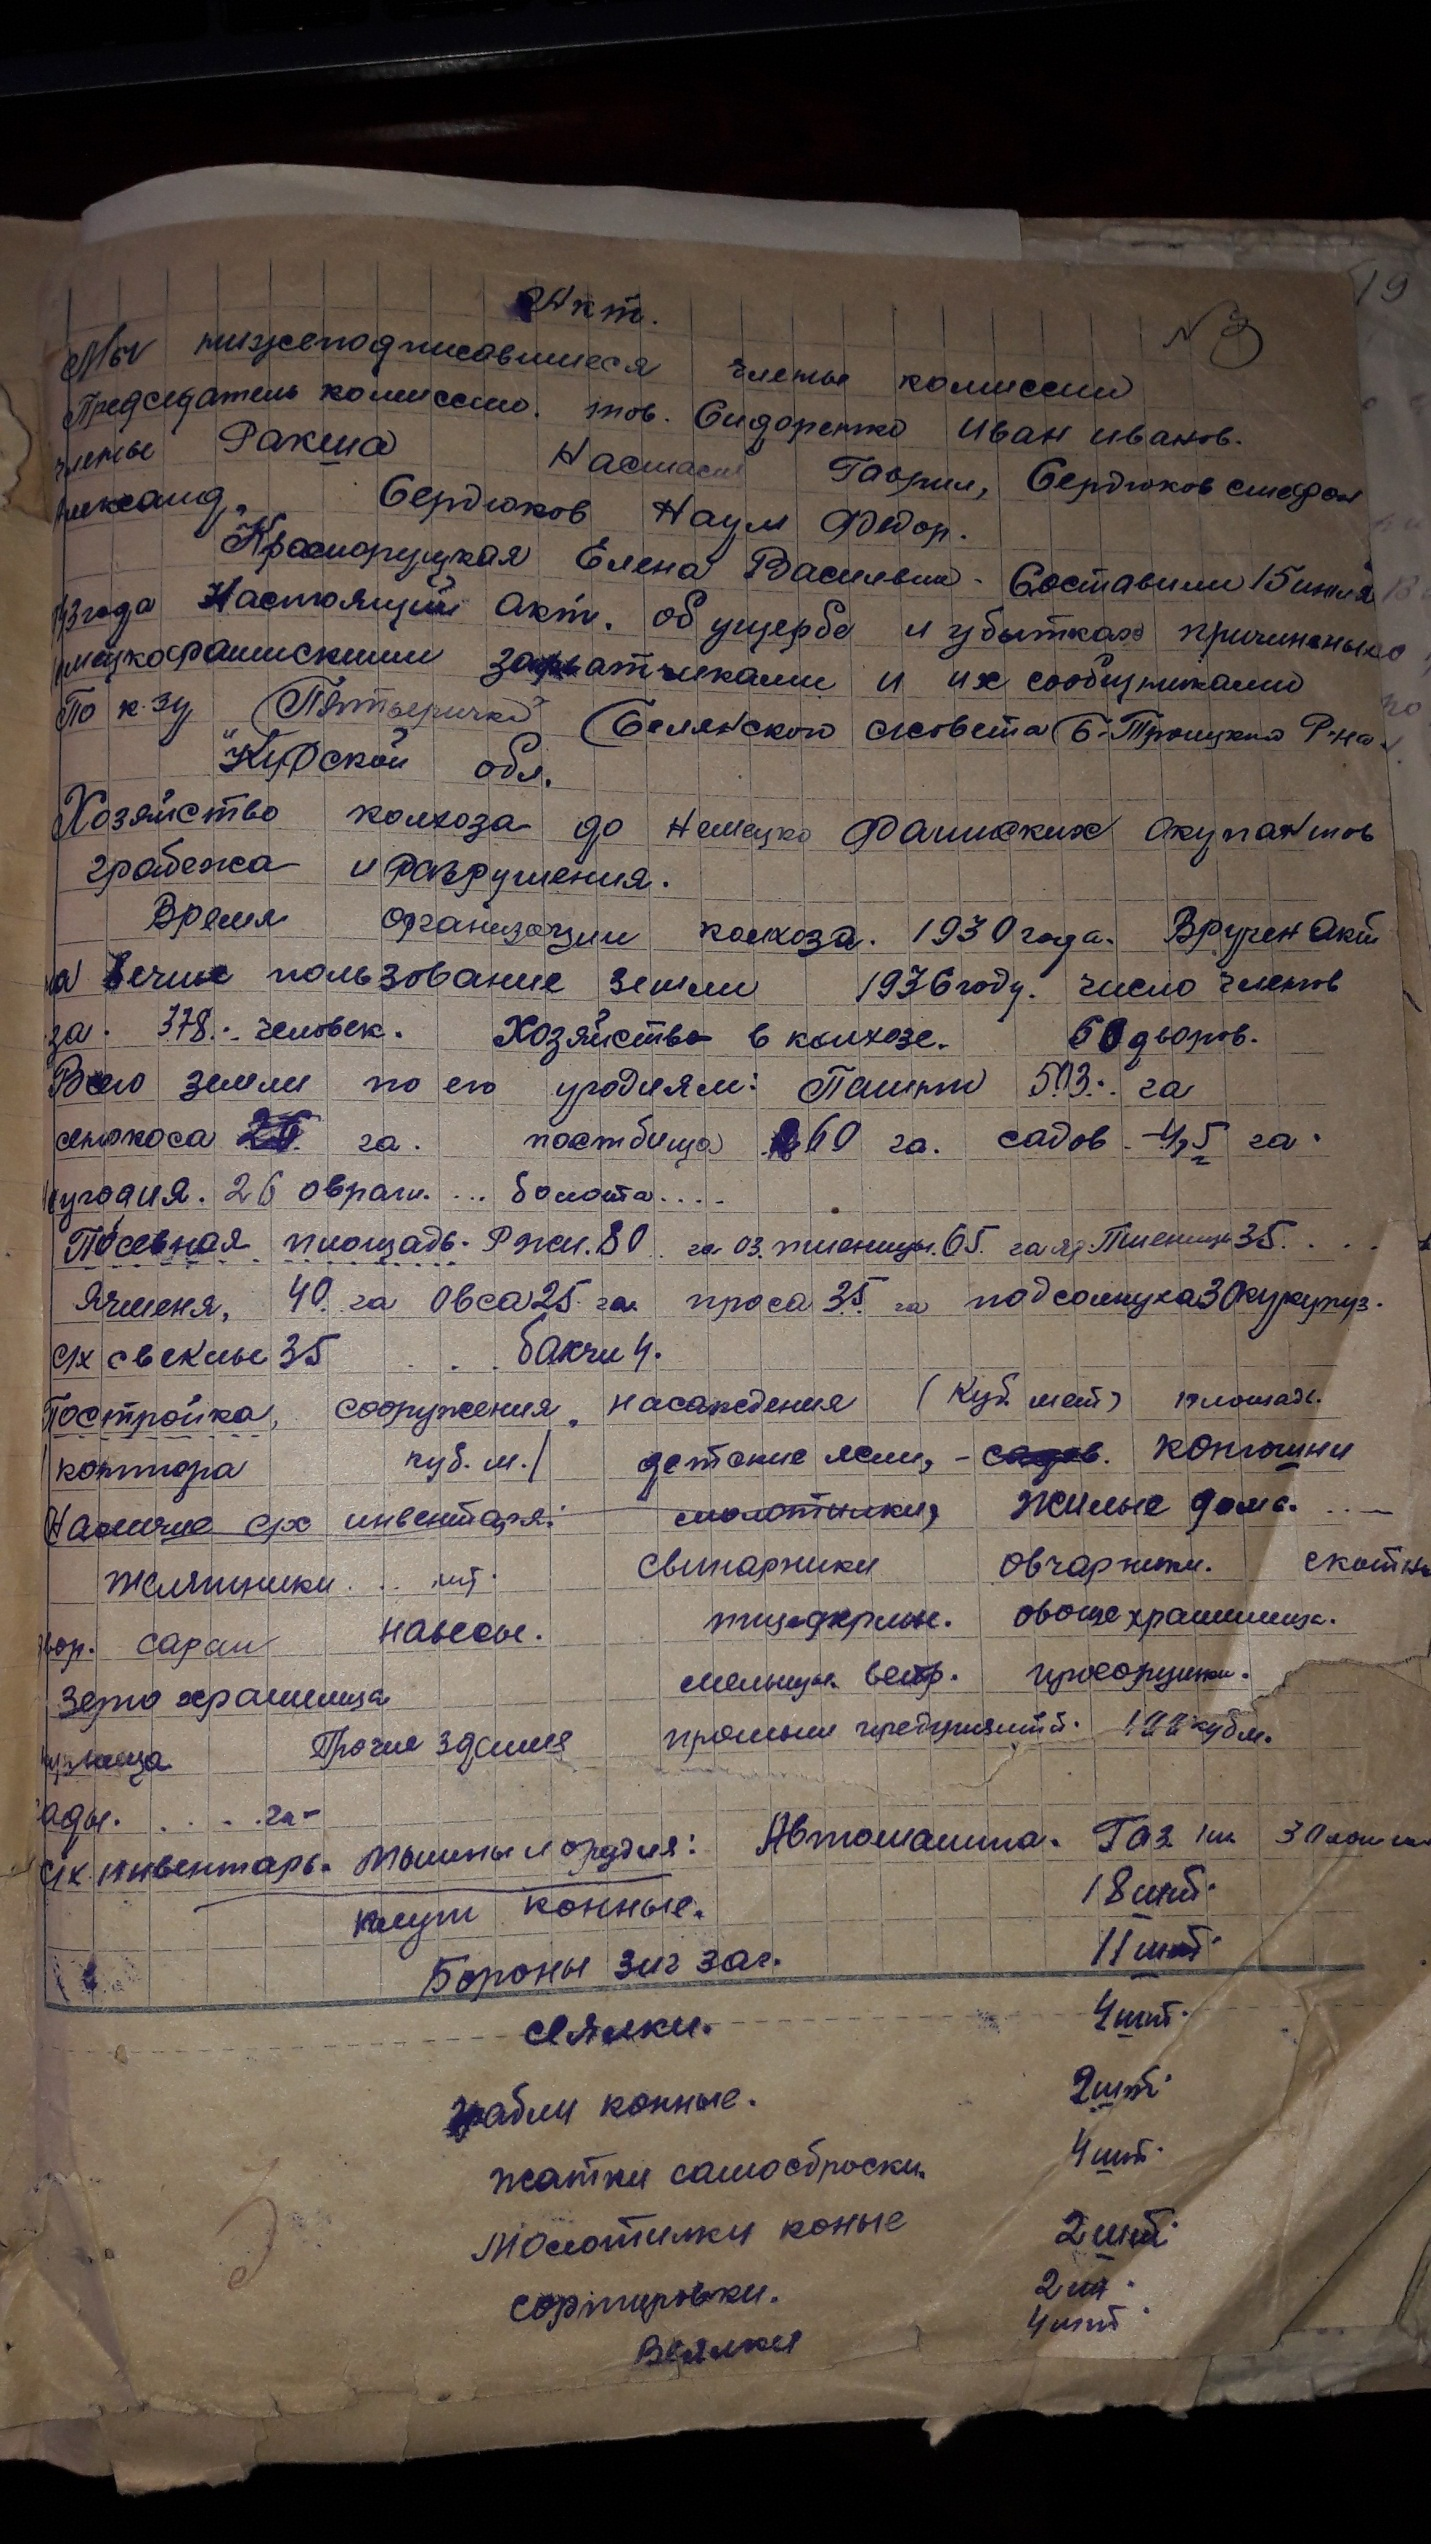 19
Акт.
N 3
Мы нижеподписавшиеся члены комиссии
Председатель комиссии. тов. Сидоренко Иван Иванов.
члены Ракша Гаврил, Сердюков Стефан
Александ. Сердюков Наум Федор.
Красноруцкая Елена Васильевн. Составили 15 июля
года Настоящий акт. об ущербе и убытках
захватчиками и их сообщниками
По к-зу "Пятьеричка" (Белянского с/совета (Б-Троицкого Р-на.
Курской обл.
Хозяйство колхоза до Немецко Фашиских окупантов
грабежа и разрушения.
Время организации колхоза. 1930 года. Вручен Акт
пользование земли 1936 году. число членов
за. 378. человек. Хозяйство в колхозе. 60 дворов.
Всего земли по его угодиям: Пашни 503. га
сенокоса га. постбища 60 га. садов 4,5 га.
неугодия. 26 овраги. ... болота....
Посевная площадь. Ржи. 80 га оз. пшеницы. 65. га яр. Пшеницы 35. ....
Ячменя, 40. га Овса 25 га. проса 35 га подсолнуха 30 кукуруз.
с/х свеклы 35 . . . бакчи 4.
Постройка, сооружения, насаждения (Куб. мет) площадь.
(контора куб. м./ детские ясли, - садов. конюшни
Наличие с/х инвентаря: молотилки, жилые дома. ...
шт. свинарники овчарники.
двор. сараи навесы. овощехранилища.
Зерно хранилища мельницы. ветр. просорушки.
Прочие здания куб м.
сады. . . . . га-
с/х. инвентарь. машины и орудия: Автомашина. Газ
плуги конные. 18 шт.
Бороны зиг заг. 11 шт.
сеялки. 4 шт.
грабли конные. 2 шт.
жатки самосброски. 4 шт.
Молотилки коные 2 шт.
сортировки. 2 шт.
Веялки 4 шт.